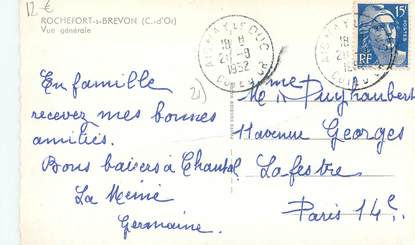 12 €
ROCHEFORT-s-BREVON (C.-d'Or)
Vue générale
AIGNAY-LE-DUC
18 H
2 -9
1952
CÔTE D'OR
15F
POSTES
RF
21)
En famille
recevez mes bonnes
amitiés.
Bons baisers à Chantal
La Mémé
Germaine.
Mme Puyhaubert
11 avenue Georges
Lafestre
Paris 14e